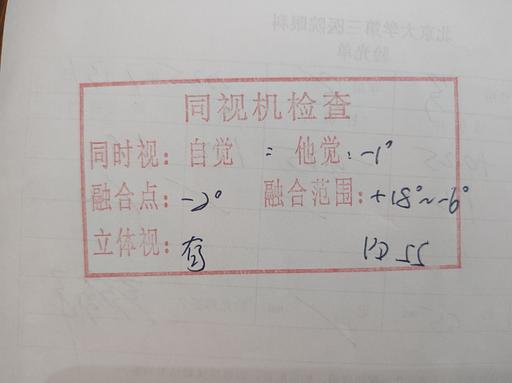 北京大学第三医院眼科
验光单
同视机检查
同时视：自觉 = 他觉：-1°
融合点：-2° 融合范围：+18°~-6°
立体视：有 PD 55